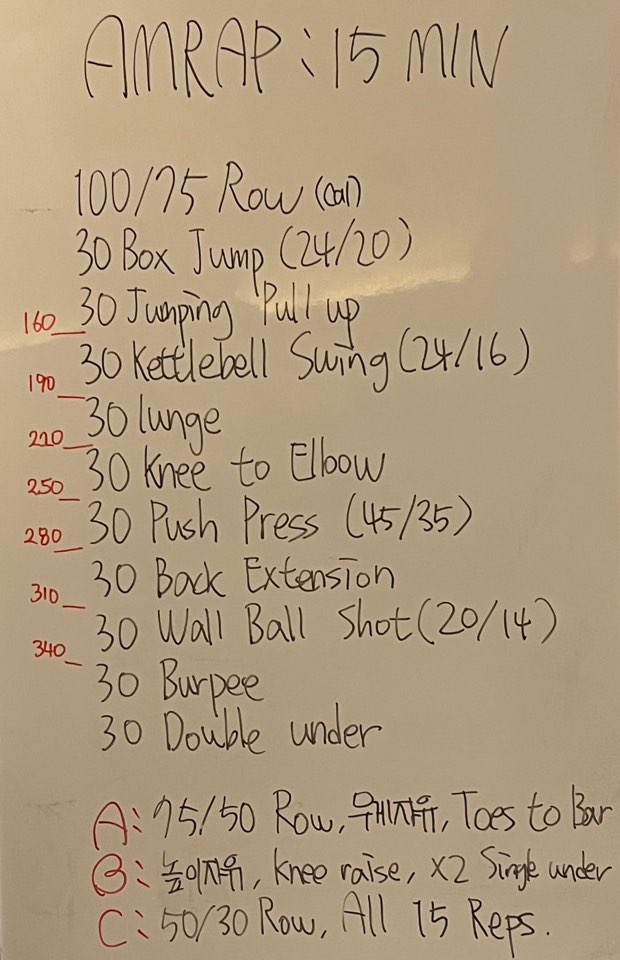 AMRAP : 15 MIN
100/75 Row (cal)
30 Box Jump (24/20)
30 Jumping Pull up
160
30 Kettlebell Swing (24/16)
190
30 lunge
220
30 knee to Elbow
250
30 Push Press (45/35)
280
30 Back Extension
310
30 Wall Ball Shot (20/14)
340
30 Burpee
30 Double under
A: 75/50 Row, 무게자유, Toes to Bar
B: 높이자유, knee raise, x2 Single under
C: 50/30 Row, All 15 Reps.